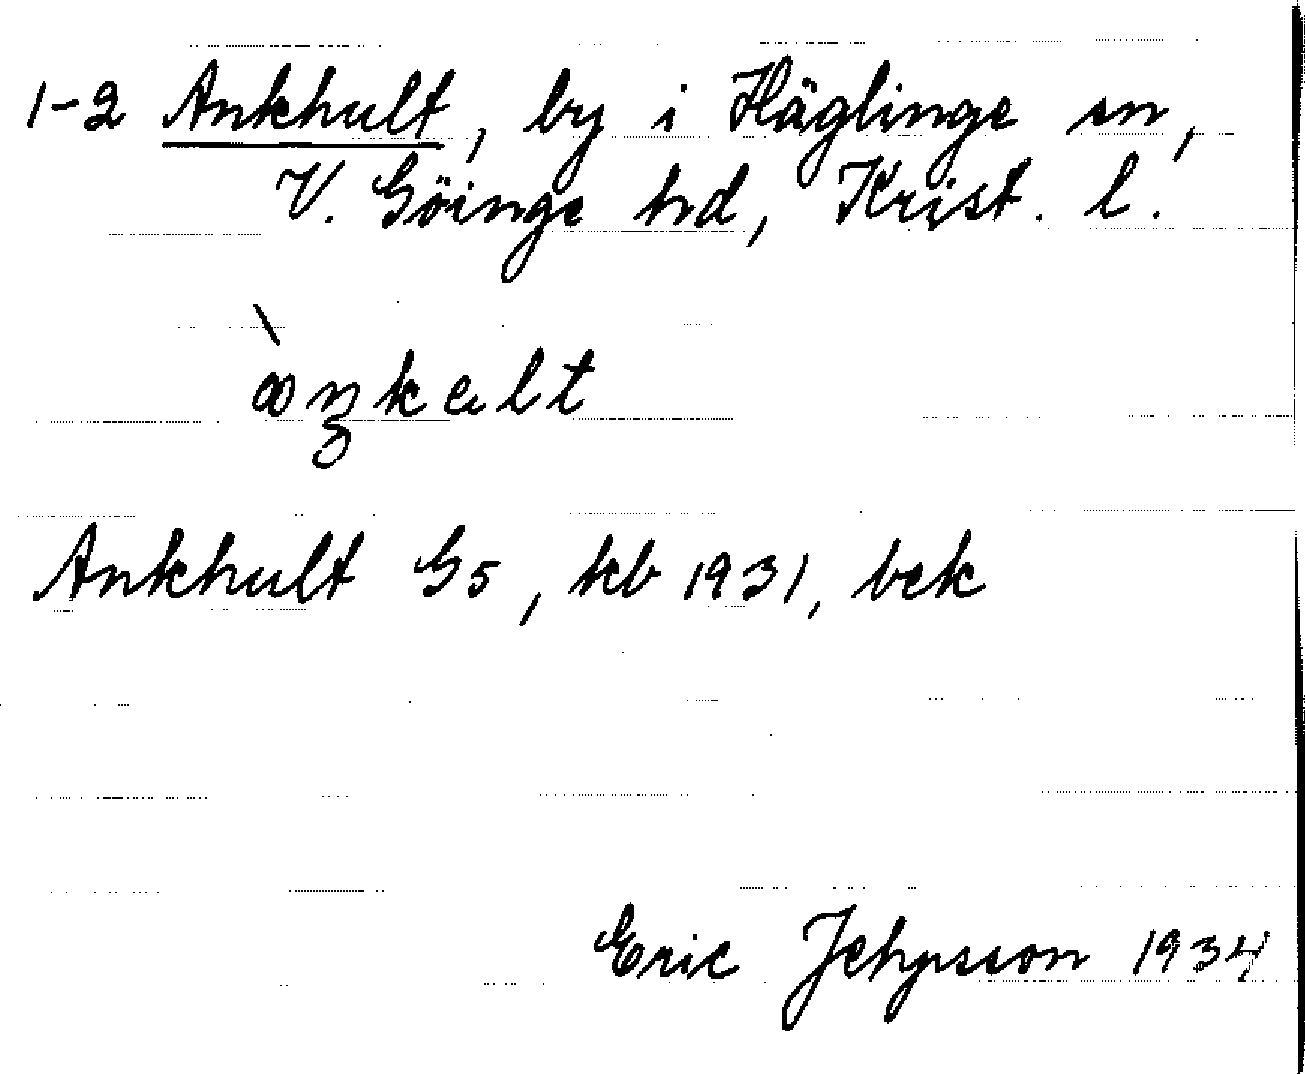 1-2 Ankhult, by i Häglinge sn,
V. Göinge hd, Krist. l.
Ankhult G5, kb 1931, bek
Eric Jehpsson 1934